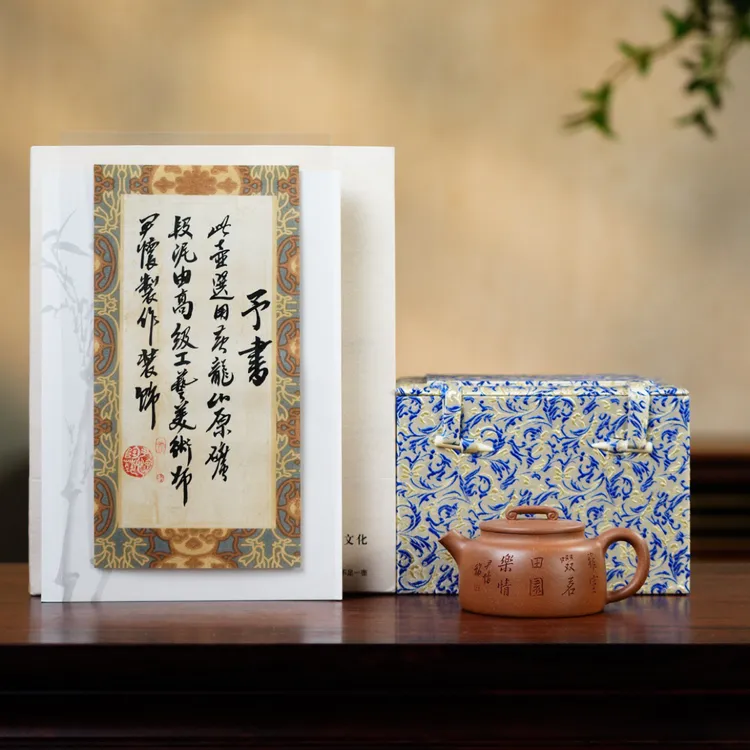 予書
此壺選用黃龍山原礦
段泥由高級工藝美術師
懷製作裝飾
文化
田園
樂情